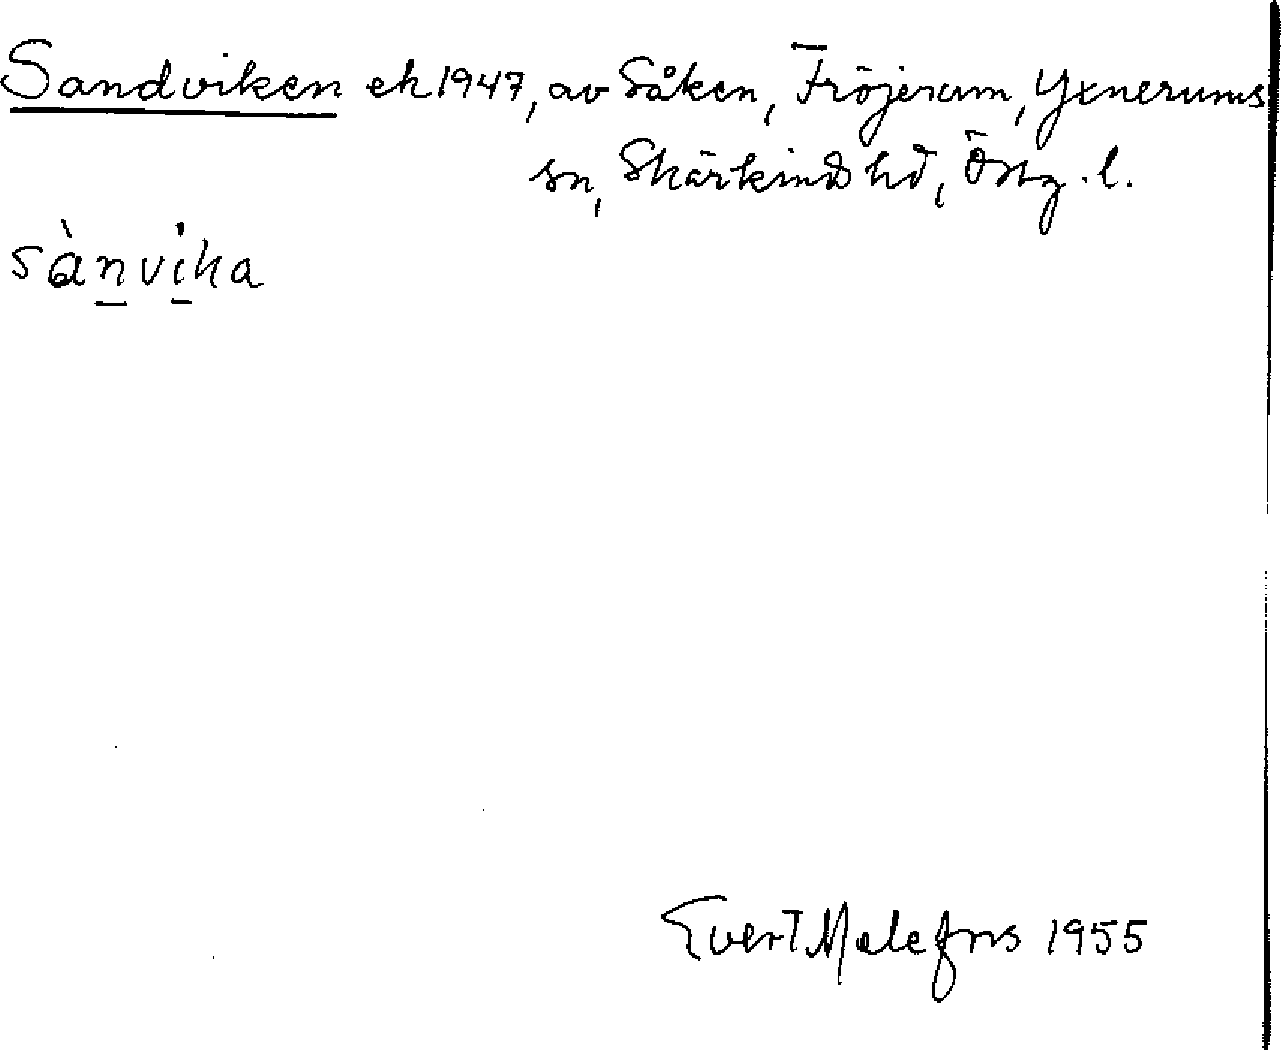 Sandviken ek 1947, av Såken, Fröjerum, Yxnerums
sn, Skärkinds hd, Östg. l.
sànvika
Evert Melefors 1955